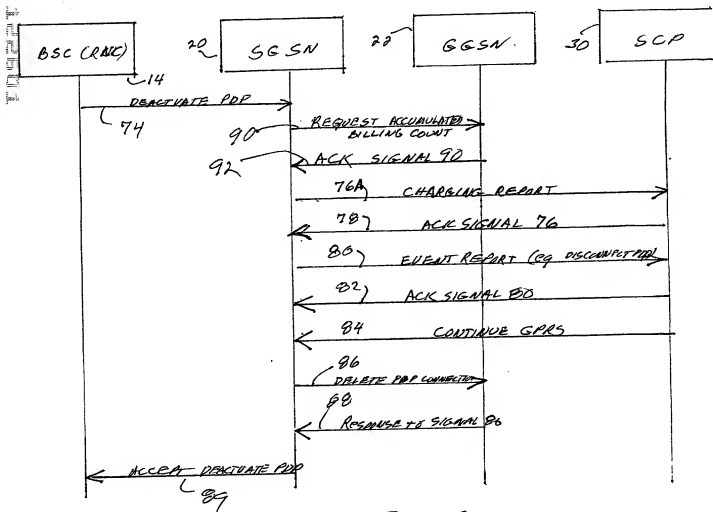 BSC (RNC)
14
20
SGSN
22
GGSN.
30
SCP
DEACTIVATE PDP
74
REQUEST ACCUMULATED
BILLING COUNT
90
ACK SIGNAL 90
92
76A
CHARGING REPORT
78
ACK SIGNAL 76
80
EVENT REPORT (eg DISCONNECT PDP)
82
ACK SIGNAL 80
84
CONTINUE GPRS
86
DELETE PDP CONNECTION
88
RESPONSE TO SIGNAL 86
ACCEPT DEACTIVATE PDP
89